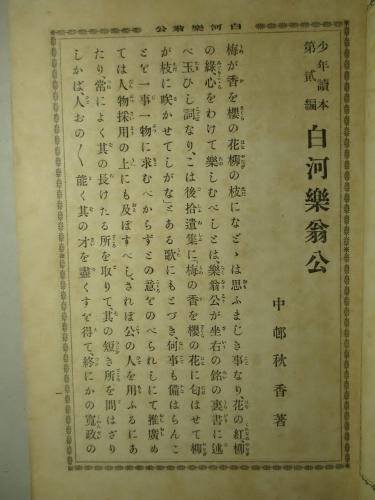 白河樂翁公
少年讀本
第貳編
白河樂翁公
中邨秋香著
梅が香を櫻の花柳の枝になどゝは思ふまじき事なり花の紅柳
の綠、心をわけて樂しむべしとは、樂翁公が坐右の銘の裏書に述
べ玉ひし詞なり、こは後拾遺集に、梅の香を櫻の花に匂はせて柳
が枝に咲かせてしがな」とある歌にもとづき、何事も備はらんこ
とを一事一物に求むべからずとの意をのべられしにて推廣め
ては人物採用の上にも及ぼすべし、されば公の人を用ふるにあ
たり、常によく其の長けたる所を取りて、其の短き所を問はざり
しかば、人おの〱能く其の才を盡くすを得て、終にかの寬政の
一